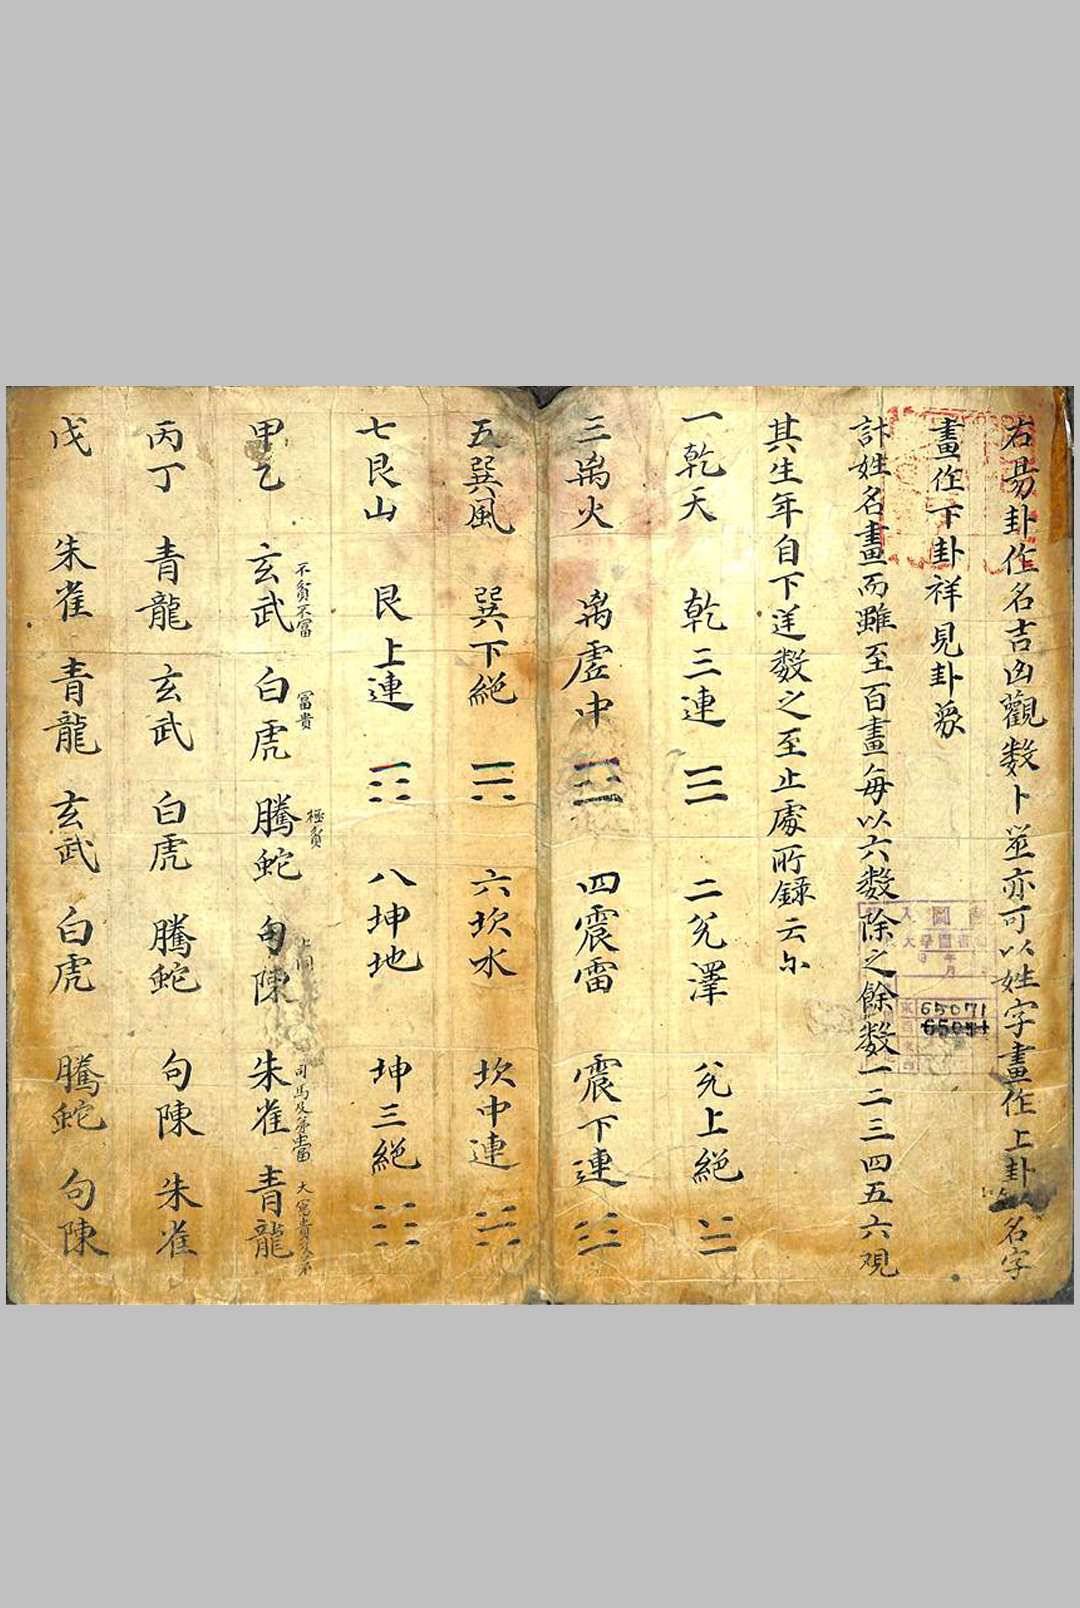 右易卦作名吉凶觀数卜筮亦可以姓字畫作上卦以名字
畫作下卦祥見卦彖
計姓名畫而雖至百畫每以六数除之餘数一二三四五六观
其生年自下逆数之至止處所錄云尓
一乾天 乾三連 ☰ 二兊澤 兊上絕 ☱
三离火 离虛中 ☲ 四震雷 震下連 ☳
五巽風 巽下絕 ☴ 六坎水 坎中連 ☵
七艮山 艮上連 ☶ 八坤地 坤三絕 ☷
甲乙 玄武 不貧不富 白虎 富貴 騰蛇 極貧 句陳 上同 朱雀 司馬及第 青龍
丙丁 青龍 玄武 白虎 騰蛇 句陳 朱雀
戊 朱雀 青龍 玄武 白虎 騰蛇 句陳
65071
65071